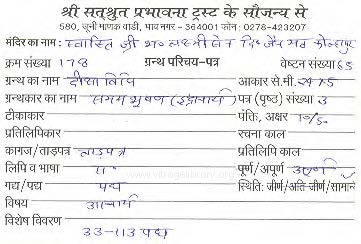 श्री सत्श्रुत प्रभावना ट्रस्ट के सौजन्य से
580, जूनी माणेक वाडी, भाव नगर - 364001 फोन : 0278-423207
मंदिर का नाम : स्वास्ति श्री भ० लक्ष्मीसेन दि० जैन मठ कोल्हापुर
क्रम संख्या 178 ग्रन्थ परिचय-पत्र वेष्टन संख्या 65
ग्रन्थ का नाम दीक्षा विधि आकार से.मी.
ग्रन्थकार का नाम समय भूषण (इन्द्राचार्य) पत्र (पृष्ठ) संख्या 3
टीकाकार पंति, अक्षर 10/50
प्रतिलिपिकार रचना काल
कागज/ताड़पत्र ताड़पत्र प्रतिलिपि काल
लिपि व भाषा पूर्ण/अपूर्ण
गद्य/पद्य पद्य स्थिति: जीर्ण/अति जीर्ण/सामान्य
विषय आचार्य
विशेष विवरण
33-113 पद्य